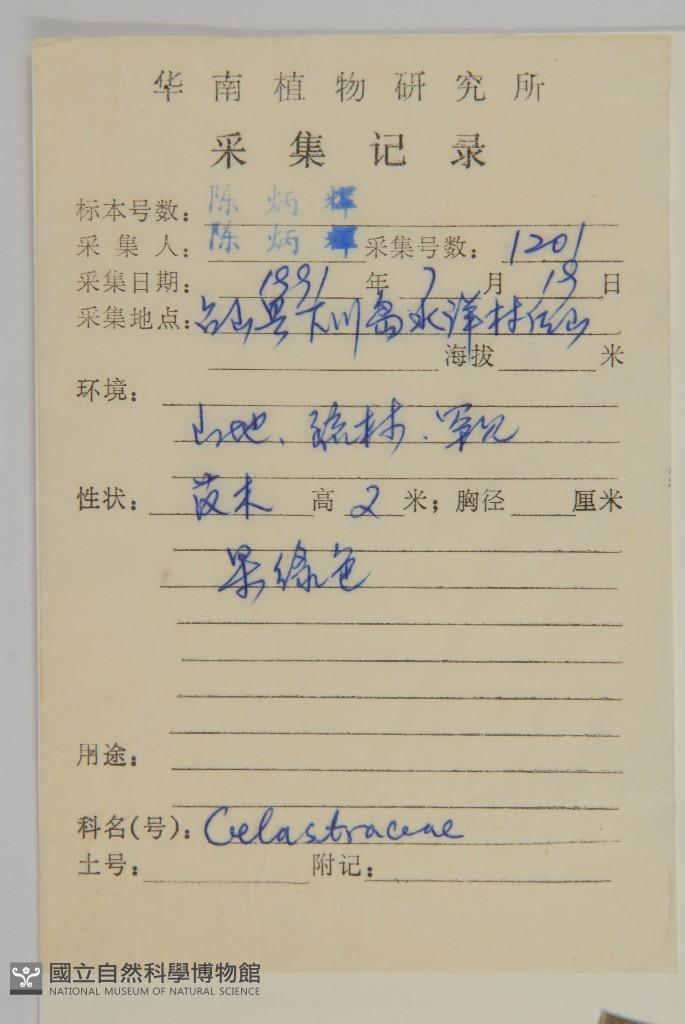 华南植物研究所
采集记录
标本号数：陈炳辉
采集人：陈炳辉 采集号数：1201
采集日期：1991年7月19日
采集地点：台山县下川岛水洋村后山
海拔 米
环境：
山地、疏林、罕见
性状：灌木 高2米；胸径 厘米
果绿色
用途：
科名(号)：Celastraceae
土号： 附记：
國立自然科學博物館
NATIONAL MUSEUM OF NATURAL SCIENCE